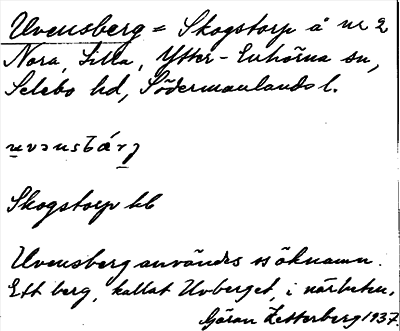 Uvensberg = Skogstorp å nr 2
Nora, Lilla, Ytter-Enhörna sn,
Selebo hd, Södermanlands l.
uvənsbárj
Skogstorp hb
Uvensberg användes ss öknamn.
Ett berg, kallat Uvberget, i närheten.
Göran Zetterberg 1937.